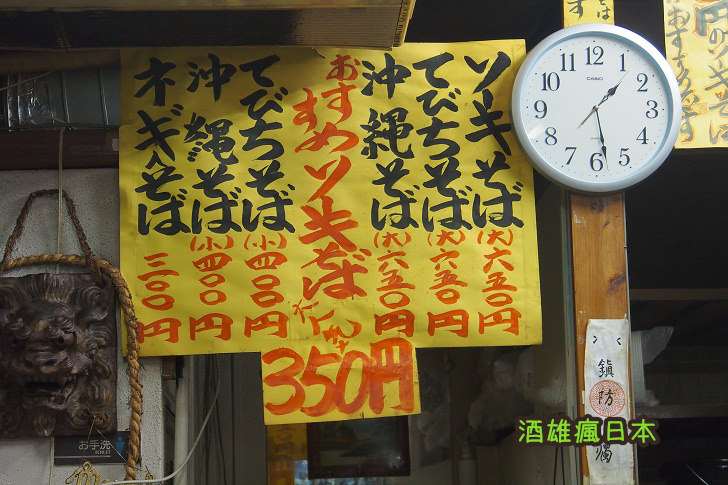 ソーキそば (大) 六五〇円
てびちそば (大) 六五〇円
沖縄そば (大) 六五〇円
おすすめソーキそば
350円
てびちそば (小) 四〇〇円
沖縄そば (小) 四〇〇円
ネギそば 三〇〇円
12
1
2
3
4
5
6
7
8
9
10
11
CASIO
鎮防燭
お手洗
TOILET
酒雄瘋日本